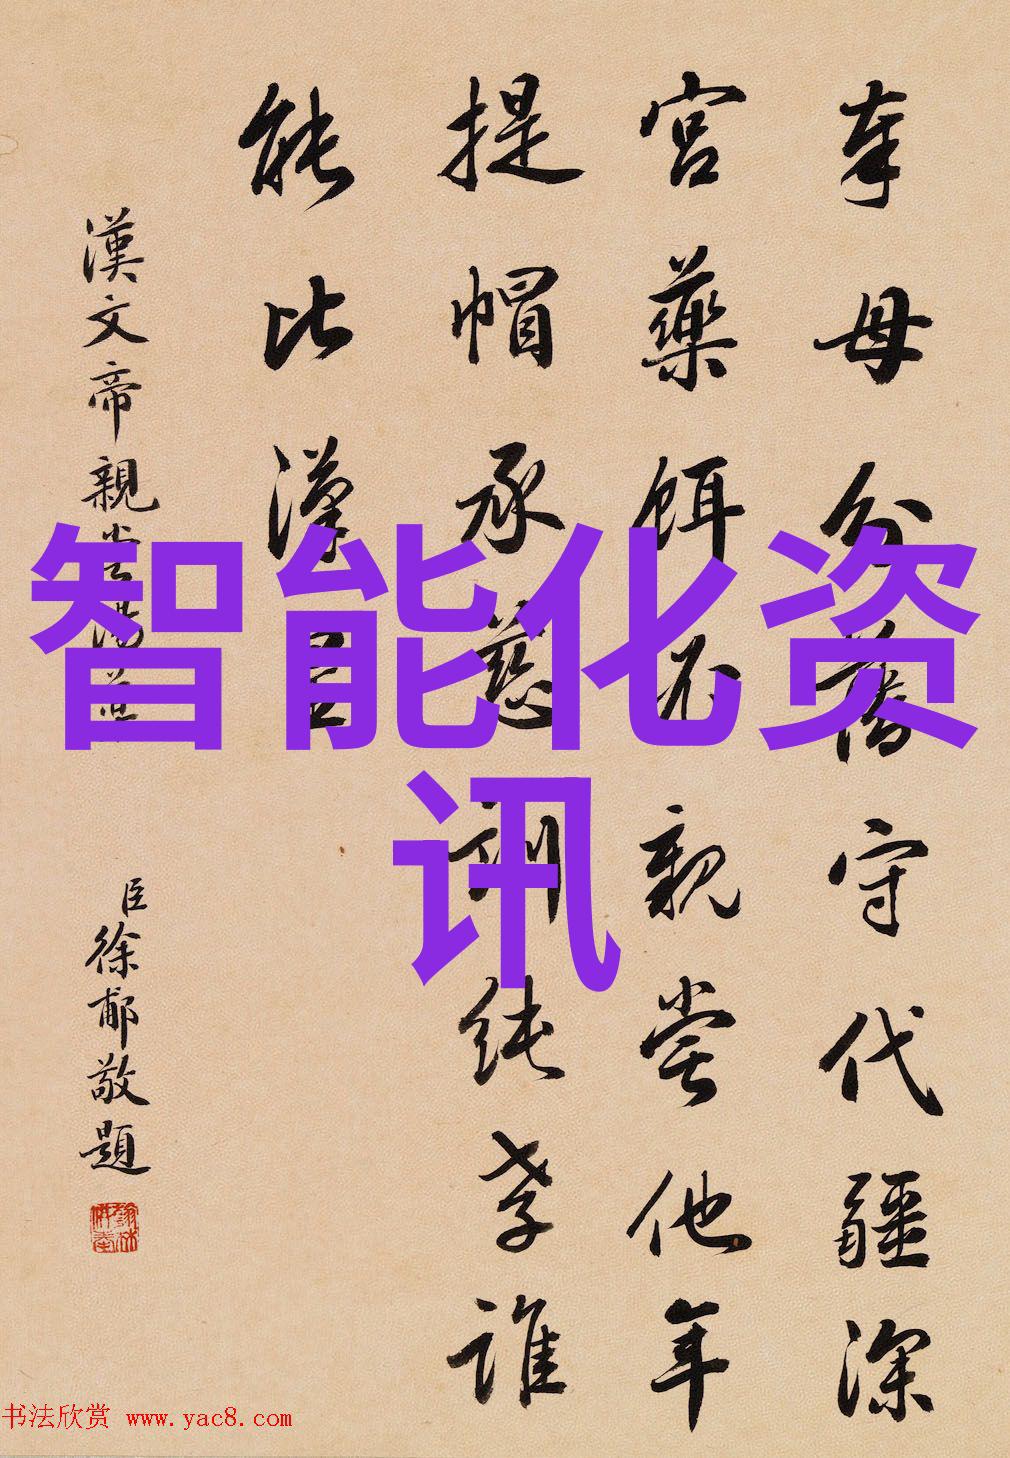 奉母分藩守代疆深
宮藥餌親嘗他年
提帽承慈訓純孝誰
能比漢
漢文帝親嘗湯
臣徐郙敬題
智能化资
讯
书法欣赏 www.yac8.com